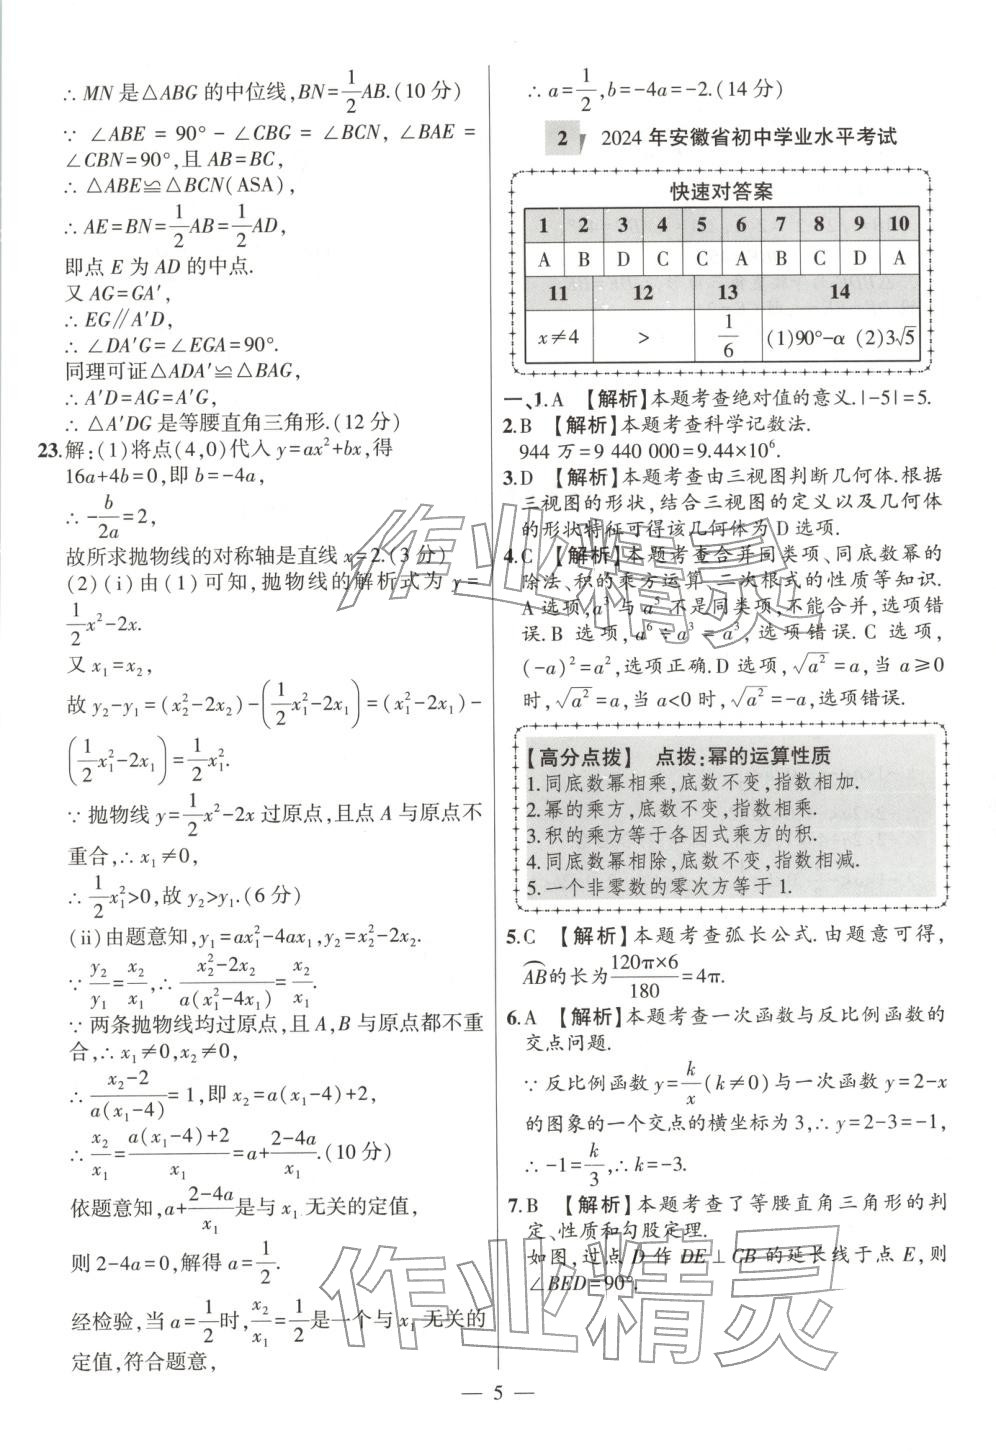 ∴ MN 是△ABG 的中位线,BN=1/2AB.(10 分)
∵ ∠ABE = 90° - ∠CBG = ∠BCN, ∠BAE =
∠CBN=90°,且 AB=BC,
∴ △ABE≌△BCN(ASA),
∴ AE=BN=1/2AB=1/2AD,
即点 E 为 AD 的中点.
又 AG=GA′,
∴ EG∥A′D,
∴ ∠DA′G=∠EGA=90°.
同理可证△ADA′≌△BAG,
∴ A′D=AG=A′G,
∴ △A′DG 是等腰直角三角形.(12 分)
23.解:(1)将点(4,0)代入 y=ax²+bx,得
16a+4b=0,即 b=-4a,
∴ -b/2a=2,
故所求抛物线的对称轴是直线 x=2.(3 分)
(2)(i)由(1)可知,抛物线的解析式为 y=
1/2x²-2x.
又 x₁=x₂,
故 y₂-y₁=(x₂²-2x₂)-(1/2x₁²-2x₁)=(x₁²-2x₁)-
(1/2x₁²-2x₁)=1/2x₁².
∵ 抛物线 y=1/2x²-2x 过原点,且点 A 与原点不
重合,∴ x₁≠0,
∴ 1/2x₁²>0,故 y₂>y₁.(6 分)
(ii)由题意知,y₁=ax₁²-4ax₁,y₂=x₂²-2x₂.
∵ y₂/y₁=x₂/x₁,∴ (x₂²-2x₂)/(a(x₁²-4x₁))=x₂/x₁.
∵ 两条抛物线均过原点,且 A,B 与原点都不重
合,∴ x₁≠0,x₂≠0,
∴ (x₂-2)/(a(x₁-4))=1,即 x₂=a(x₁-4)+2,
∴ x₂/x₁=(a(x₁-4)+2)/x₁=a+(2-4a)/x₁.(10 分)
依题意知,a+(2-4a)/x₁是与 x₁ 无关的定值,
则 2-4a=0,解得 a=1/2.
经检验,当 a=1/2时,x₂/x₁=1/2是一个与 x₁ 无关的
定值,符合题意,
∴ a=1/2,b=-4a=-2.(14 分)
2 2024 年安徽省初中学业水平考试
快速对答案
1 2 3 4 5 6 7 8 9 10
A B D C C A B C D A
11 12 13 14
x≠4 > 1/6 (1)90°-α (2)3√5
一、1.A 【解析】本题考查绝对值的意义.|-5|=5.
2.B 【解析】本题考查科学记数法.
944 万=9 440 000=9.44×10⁶.
3.D 【解析】本题考查由三视图判断几何体.根据
三视图的形状,结合三视图的定义以及几何体
的形状特征可得该几何体为 D 选项.
4.C 【解析】本题考查合并同类项、同底数幂的
除法、积的乘方运算、二次根式的性质等知识.
A 选项,a³与 a² 不是同类项,不能合并,选项错
误.B 选项,a⁶÷a³=a³,选项错误.C 选项,
(-a)²=a²,选项正确.D 选项,√a²=a,当 a≥0
时,√a²=a,当 a<0 时,√a²=-a,选项错误.
【高分点拨】 点拨:幂的运算性质
1.同底数幂相乘,底数不变,指数相加.
2.幂的乘方,底数不变,指数相乘.
3.积的乘方等于各因式乘方的积.
4.同底数幂相除,底数不变,指数相减.
5.一个非零数的零次方等于 1.
5.C 【解析】本题考查弧长公式.由题意可得,
A͡B的长为120π×6/180=4π.
6.A 【解析】本题考查一次函数与反比例函数的
交点问题.
∵ 反比例函数 y=k/x(k≠0)与一次函数 y=2-x
的图象的一个交点的横坐标为 3,∴ y=2-3=-1,
∴ -1=k/3,∴ k=-3.
7.B 【解析】本题考查了等腰直角三角形的判
定、性质和勾股定理.
如图,过点 D 作 DE⊥CB 的延长线于点 E,则
∠BED=90°,
— 5 —
作业精灵
作业精灵